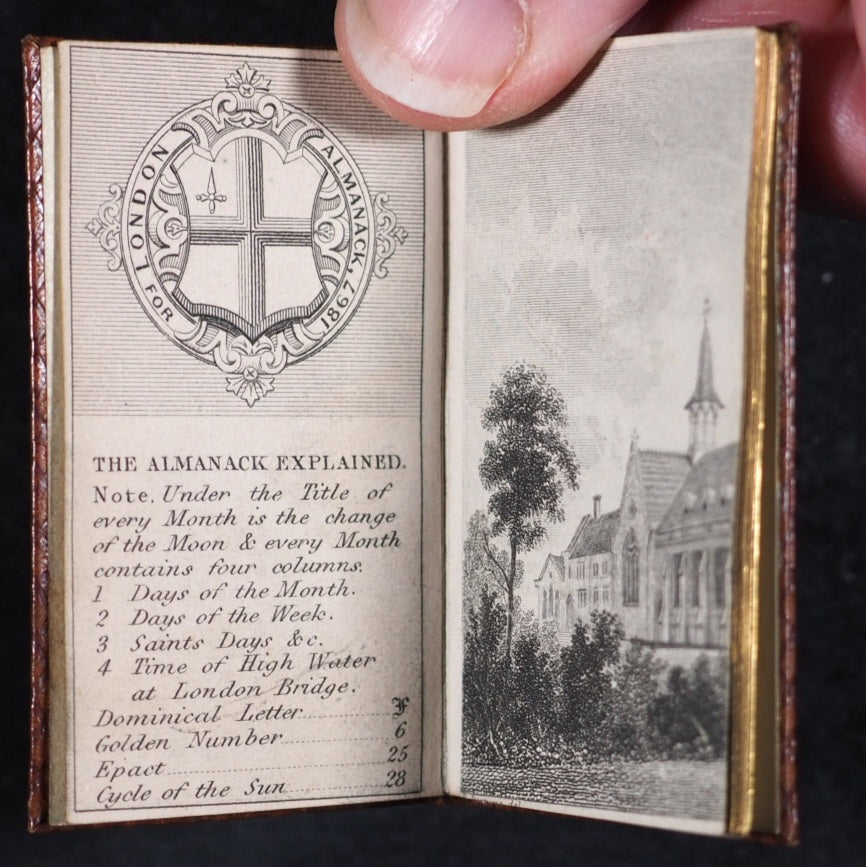 LONDON ALMANACK,
FOR 1867
THE ALMANACK EXPLAINED.
Note. Under the Title of
every Month is the change
of the Moon & every Month
contains four columns.
1 Days of the Month.
2 Days of the Week.
3 Saints Days &c.
4 Time of High Water
at London Bridge.
Dominical Letter F
Golden Number 6
Epact 25
Cycle of the Sun 28